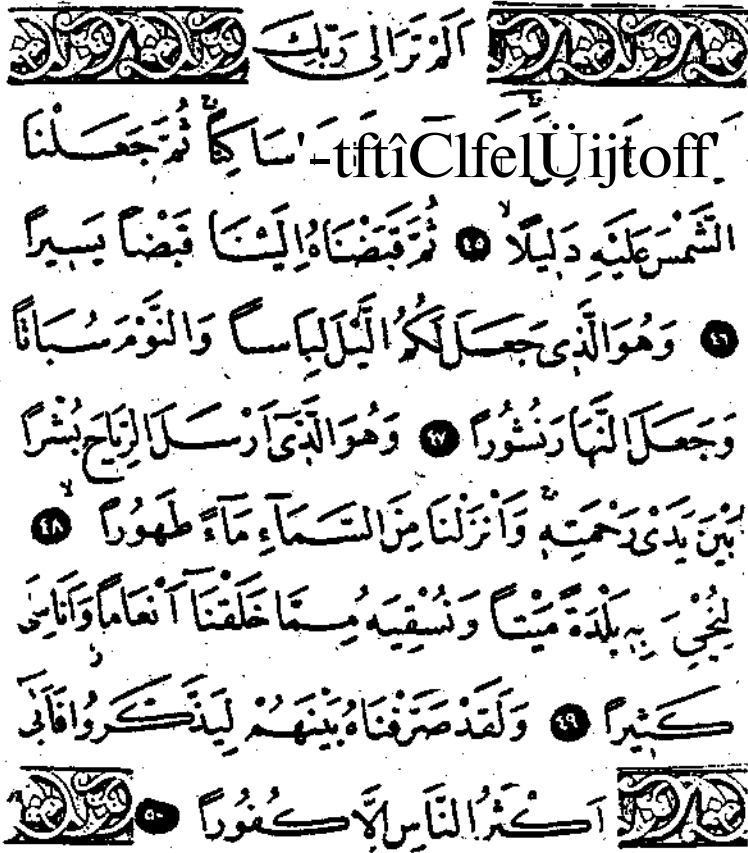 اَلَمْ تَرَ اِلٰى رَبِّكَ
'-tftîClfelÜijtoff' سَاكِنًاۚ ثُمَّ جَعَلْنَا
الشَّمْسَ عَلَيْهِ دَلٖيلًاۙ ٤٥ ثُمَّ قَبَضْنَاهُ اِلَيْنَا قَبْضًا يَسٖيرًا
٤٦ وَهُوَ الَّذٖى جَعَلَ لَكُمُ الَّيْلَ لِبَاسًا وَالنَّوْمَ سُبَاتًا
وَجَعَلَ النَّهَارَ نُشُورًا ٤٧ وَهُوَ الَّذٖٓى اَرْسَلَ الرِّيَاحَ بُشْرًا
بَيْنَ يَدَىْ رَحْمَتِهٖۚ وَاَنْزَلْنَا مِنَ السَّمَٓاءِ مَٓاءً طَهُورًاۙ ٤٨
لِنُحْیِىَ بِهٖ بَلْدَةً مَيْتًا وَنُسْقِيَهُ مِمَّا خَلَقْنَٓا اَنْعَامًا وَاَنَاسِىَّ
كَثٖيرًا ٤٩ وَلَقَدْ صَرَّفْنَاهُ بَيْنَهُمْ لِيَذَّكَّرُواۘ فَاَبٰٓى
اَكْثَرُ النَّاسِ اِلَّا كُفُورًا ٥٠